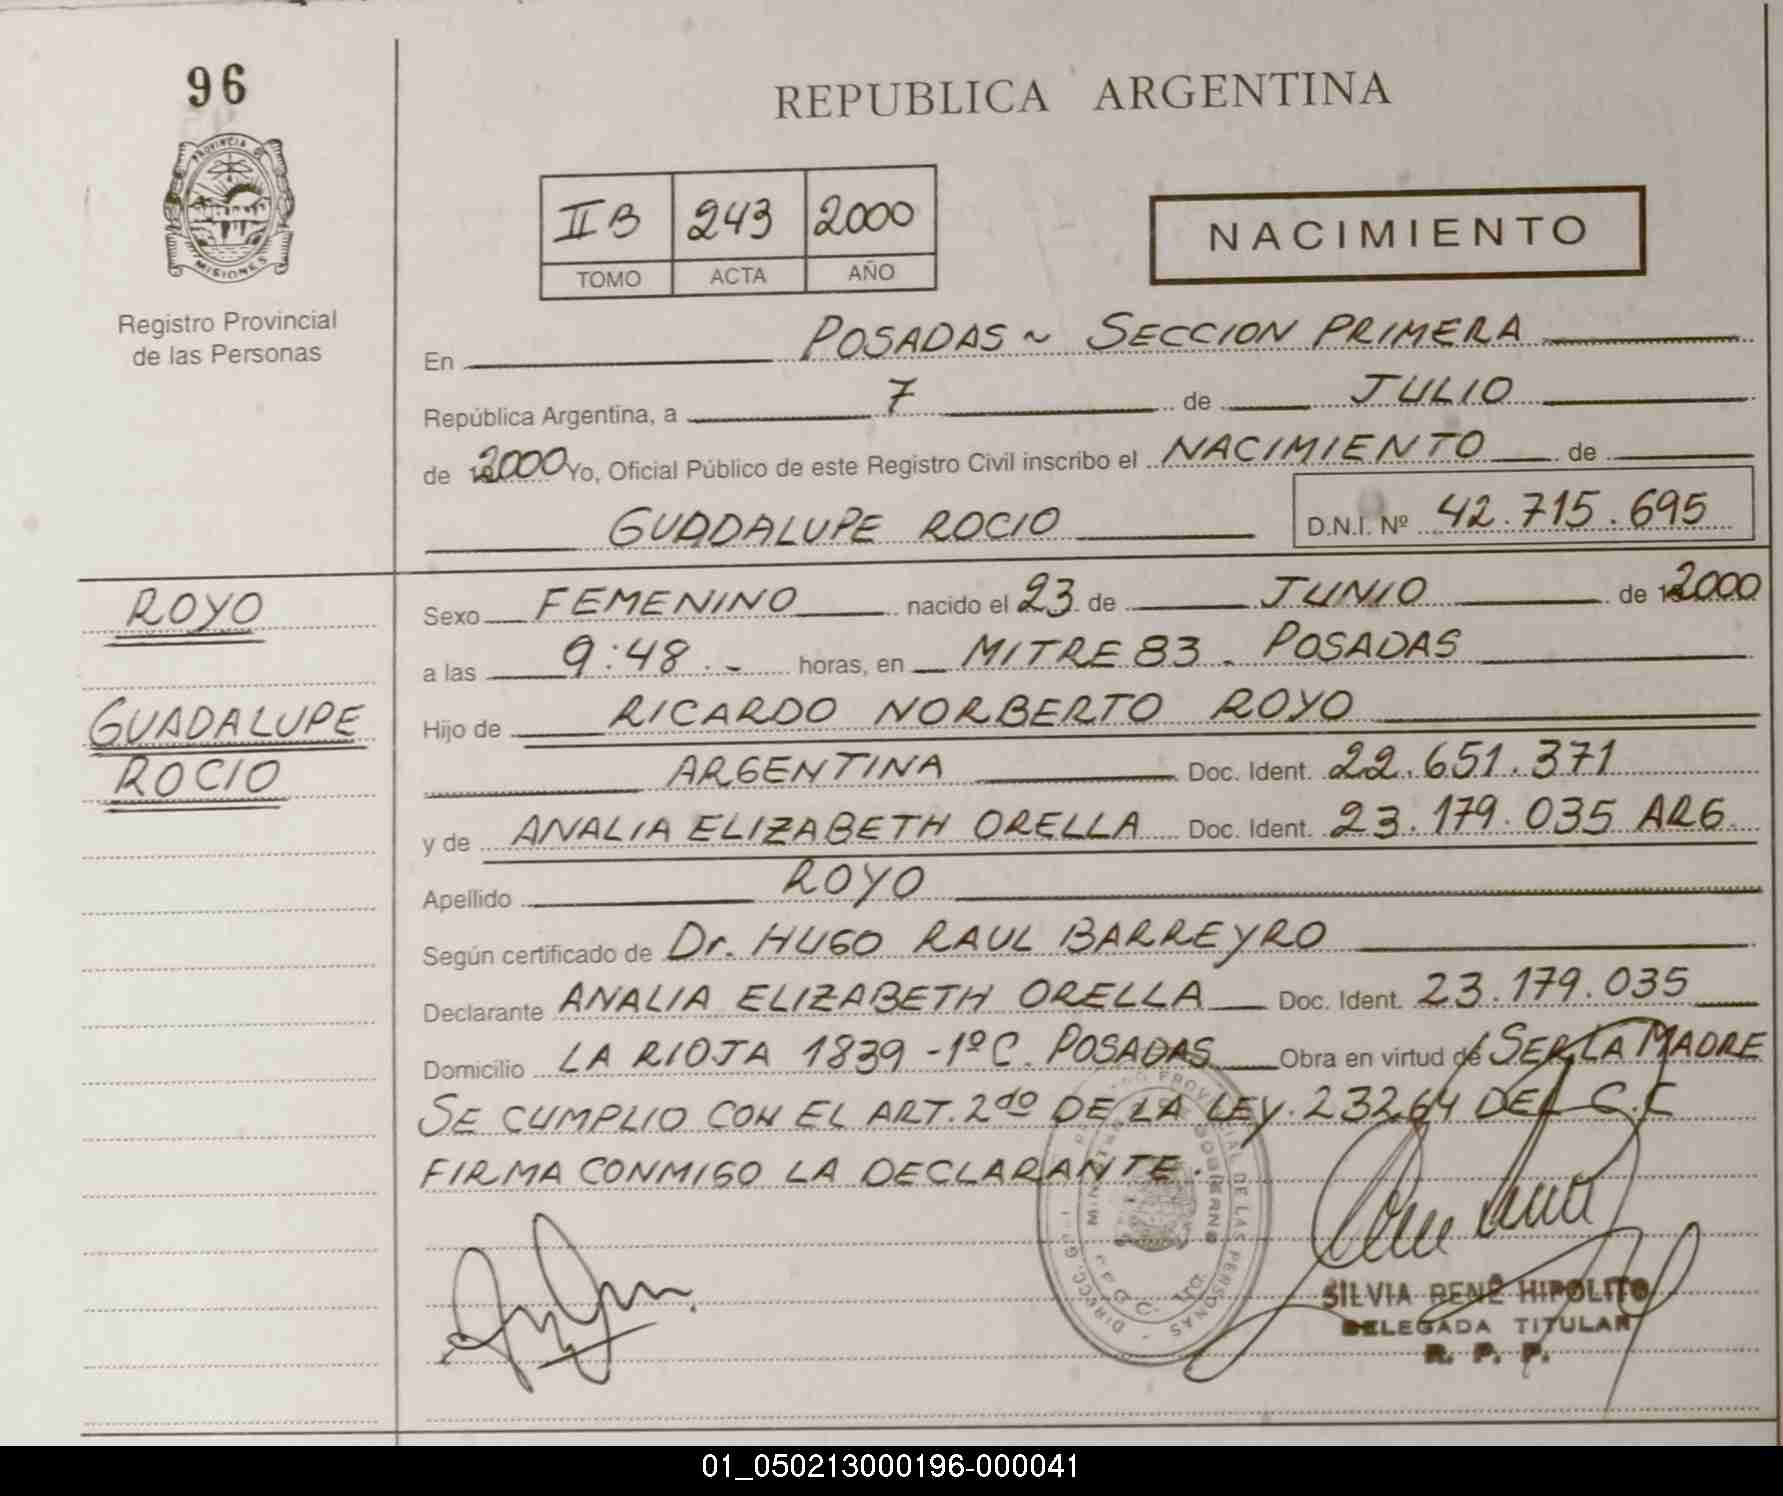 96
REPUBLICA ARGENTINA
PROVINCIA DE
MISIONES
Registro Provincial
de las Personas
II B 243 2000
TOMO ACTA AÑO
NACIMIENTO
En POSADAS ~ SECCION PRIMERA
República Argentina, a 7 de JULIO
de 2000 Yo, Oficial Público de este Registro Civil inscribo el NACIMIENTO de
GUADALUPE ROCIO D.N.I. Nº 42.715.695
ROYO
GUADALUPE
ROCIO
Sexo FEMENINO nacido el 23 de JUNIO de 2000
a las 9:48.- horas, en MITRE 83. POSADAS
Hijo de RICARDO NORBERTO ROYO
ARGENTINA Doc. Ident. 22.651.371
y de ANALIA ELIZABETH ORELLA Doc. Ident. 23.179.035 ARG.
Apellido ROYO
Según certificado de Dr. HUGO RAUL BARREYRO
Declarante ANALIA ELIZABETH ORELLA Doc. Ident. 23.179.035
Domicilio LA RIOJA 1839 - 1º C. POSADAS Obra en virtud de SER LA MADRE
SE CUMPLIO CON EL ART. 2do DE LA LEY. 23264 DEL C.C
FIRMA CONMIGO LA DECLARANTE.
SILVIA RENÉ HIPOLITO
DELEGADA TITULAR
R. P. P.
01_050213000196-000041